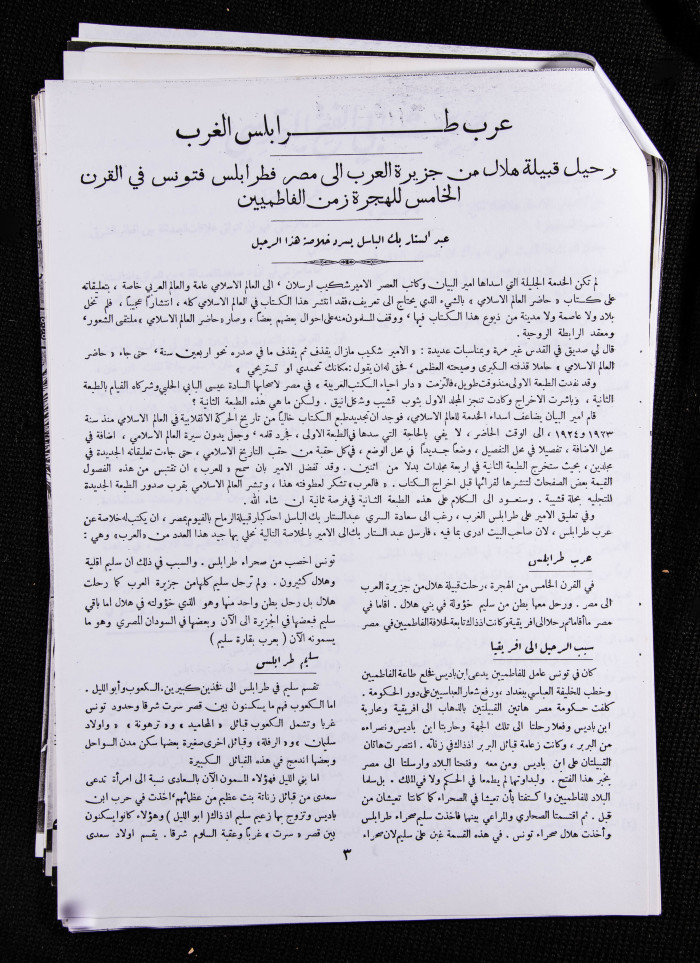 عرب طـــرابلس الغرب
رحيل قبيلة هلال من جزيرة العرب الى مصر فطرابلس فتونس في القرن
الخامس للهجرة زمن الفاطميين
عبد الستار بك الباسل يسرد خلاصة هذا الرحيل
لم تكن الخدمة الجليلة التي اسداها امير البيان وكاتب العصر الامير شكيب ارسلان ، الى العالم الاسلامي عامة والعالم العربي خاصة ، بتعليقاته
على كتاب « حاضر العالم الاسلامي » بالشيء الذي يحتاج الى تعريف، فقد انتشر هذا الكتاب في العالم الاسلامي كله ، انتشاراً عجيباً ، فلم تخل
بلاد ولا عاصمة ولا مدينة من ذيوع هذا الكتاب فيها ، ووقف المسلمون منه على احوال بعضهم بعضا ، وصار «حاضر العالم الاسلامي» ملتقى الشعور ،
ومعقد الرابطة الروحية .
قال لي صديق في القدس غير مرة وبمناسبات عديدة : « الامير شكيب مازال يقذف ثم يقذف ما في صدره نحو اربعين سنة ، حتى جاء « حاضر
العالم الاسلامي » حاملا قذفته الكبرى وصيحته العظمى ، فحق له ان يقول : مكانك تحمدي او تستريحي »
وقد نفدت الطبعة الاولى منذ وقت طويل، فالتزمت « دار احياء الكتب العربية » في مصر لاصحابها السادة عيسى البابي الحلبي وشركاه القيام بالطبعة
الثانية ، وباشرت الاخراج وكادت تنجز المجلد الاول بثوب قشيب وشكل انيق . ولكن ما هي هذه الطبعة الثانية ؟
قام امير البيان يضاعف اسداء الخدمة للعالم الاسلامي، فوجد ان تجديد طبع الكتاب خالياً من تاريخ الحركة الانقلابية في العالم الاسلامي منذ سنة
١٩٢٣ و ١٩٢٤ ، الى الوقت الحاضر ، لا يفي بالحاجة التي سدها في الطبعة الاولى ، فجرد قلمه ، وجعل يدون سيرة العالم الاسلامي ، اضافة في
محل الاضافة ، تفصيلا في محل التفصيل ، وضعاً جديداً في محل الوضع ، في كل حقبة من حقب التاريخ الاسلامي ، حتى جاءت تعليقاته الجديدة في
مجلدين، بحيث ستخرج الطبعة الثانية في اربعة مجلدات بدلا من اثنين . وقد تفضل الامير بان سمح « للعرب » ان تقتبس من هذه الفصول
القيمة بعض الصفحات لتنشرها لقرائها قبل اخراج الكتاب . « فالعرب » تشكر لعطوفته هذا ، وتبشر العالم الاسلامي بقرب صدور الطبعة الجديدة
المتجليه بحلة قشيبة . وسنعود الى الكلام على هذه الطبعة الثانية في فرصة ثانية ان شاء الله .
وفي تعليق الامير على طرابلس الغرب ، رغب الى سعادة السري عبد الستار بك الباسل احد كبار قبيلة الرماح بالفيوم بمصر ، ان يكتب له خلاصة عن
عرب طرابلس ، لان صاحب البيت ادرى بما فيه ، فارسل عبد الستار بك الى الامير بالخلاصة التالية نحلي بها جيد هذا العدد من «العرب» وهي :
عرب طرابلس
في القرن الخامس من الهجرة ، رحلت قبيلة هلال من جزيرة العرب
الى مصر . ورحل معها بطن من سليم خؤولة في بني هلال . اقاما في
مصر ما أقاما ثم رحلا الى افريقية وكانت اذ ذاك تابعة لخلافة الفاطميين في مصر
سبب الرحيل الى افريقيا
كان في تونس عامل للفاطميين يدعى ابن باديس فخلع طاعة الفاطميين
وخطب للخليفة العباسي ببغداد ، ورفع شعار العباسيين على دور الحكومة .
كلفت حكومة مصر هاتين القبيلتين بالذهاب الى افريقية ومحاربة
ابن باديس وفعلا رحلتا الى تلك الجهة وحاربتا ابن باديس ونصراءه
من البربر ، وكانت زعامة قبائل البربر اذ ذاك في زناته . انتصرت هاتان
القبيلتان على ابن باديس ومن معه وفتحتا البلاد وارسلتا الى مصر
بخبر هذا الفتح . ولبداوتهما لم يطمعا في الحكم ولا في الملك . بل سلما
البلاد للفاطميين واكتفتا بأن تعيشا في الصحراء كما كانتا تعيشان من
قبل . ثم اقتسمتا الصحاري والمراعي بينهما فاخذت سليم صحراء طرابلس
وأخذت هلال صحراء تونس . في هذه القسمة غبن على سليم لان صحراء
تونس اخصب من صحراء طرابلس . والسبب في ذلك ان سليم اقلية
وهلال كثيرون . ولم ترحل سليم كلها من جزيرة العرب كما رحلت
هلال بل رحل بطن واحد منها وهو الذي خؤولته في هلال اما باقي
سليم فبعضها في الجزيرة الى الآن وبعضها في السودان المصري وهو ما
يسمونه الآن ( بعرب بقارة سليم )
سليم طرابلس
تقسم سليم في طرابلس الى فخذين كبيرين . الكعوب وأبو الليل .
اما الكعوب فهم ما يسكنون بين قصر سرت شرقا وحدود تونس
غربا وتشمل الكعوب قبائل « المحاميد » و « ترهونة » « واولاد
سليمان » و « الرفلة » وقبائل اخرى صغيرة بعضها سكن مدن السواحل
وبعضها اندمج في هذه القبائل الكبيرة
اما بني الليل فهؤلاء المسمون الآن بالسعادى نسبة الى امرأة تدعى
سعدى من قبائل زناتة بنت عظيم من عظمائهم ، اخذت في حرب ابن
باديس وتزوج بها زعيم سليم اذ ذاك ( ابو الليل ) وهؤلاء كانوا يسكنون
بين قصر « سرت » غربا وعقبة السلوم شرقا . يقسم اولاد سعدى
٣